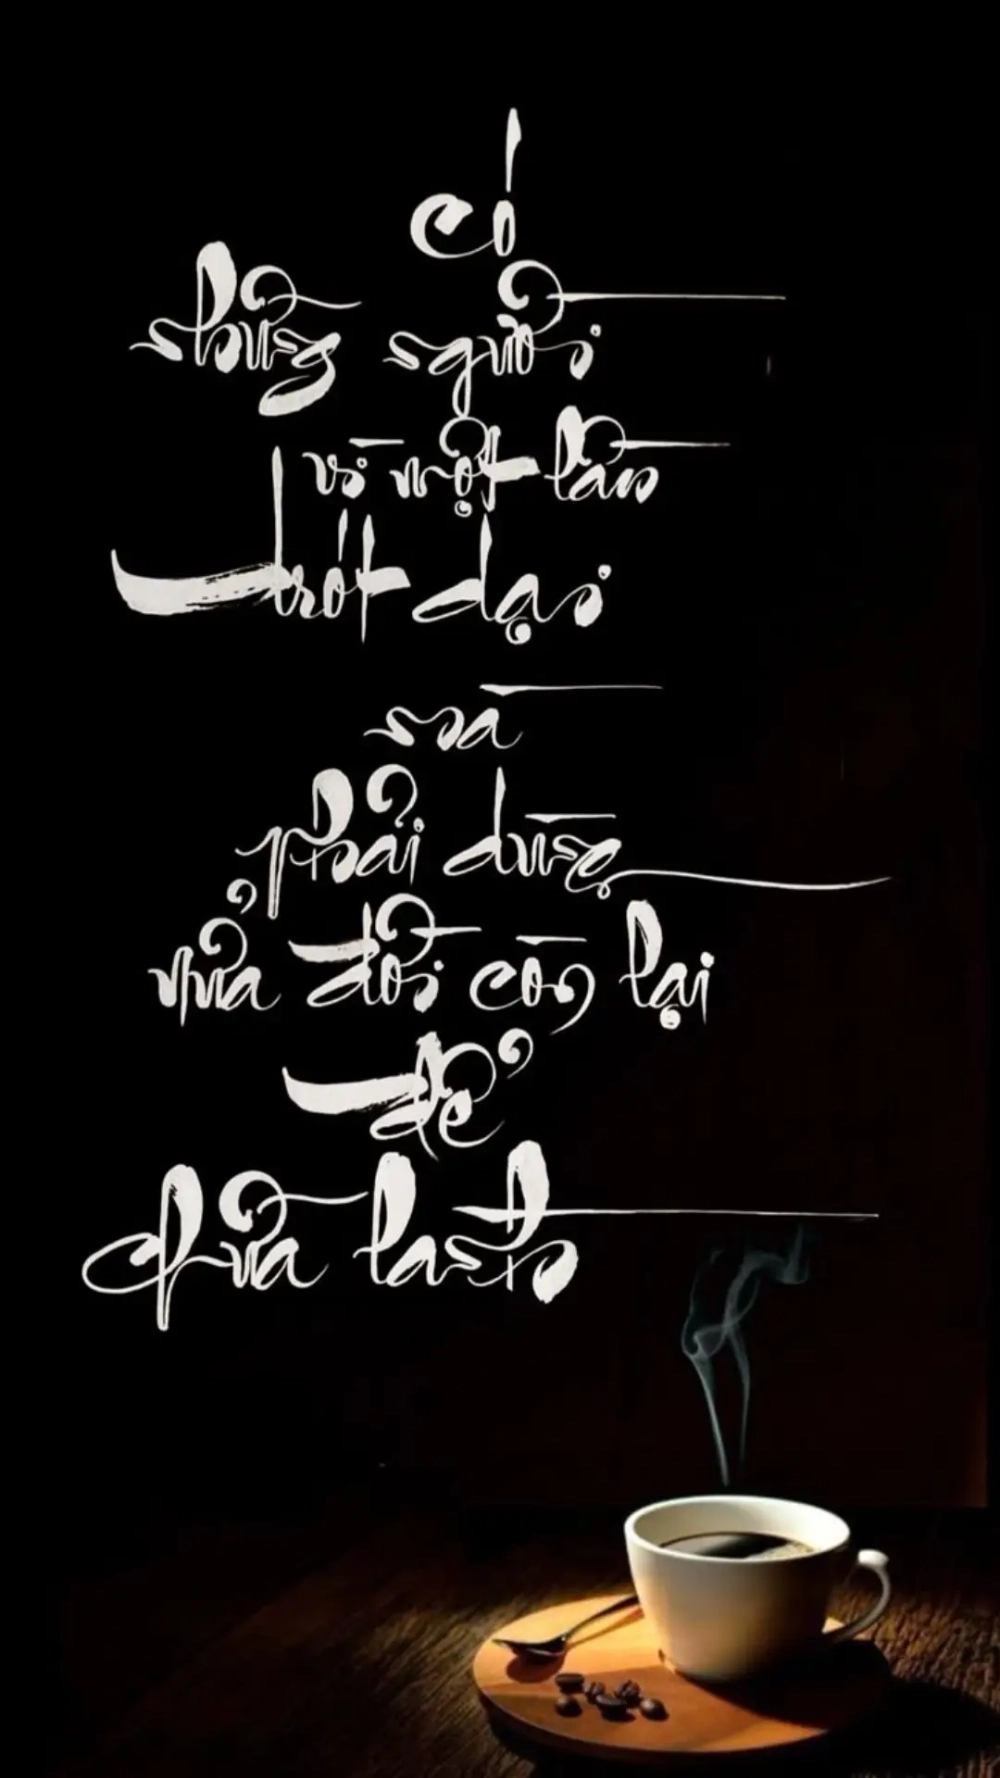 Có
những người
vì một lần
trót dại
mà
phải dùng
nửa đời còn lại
để
chữa lành